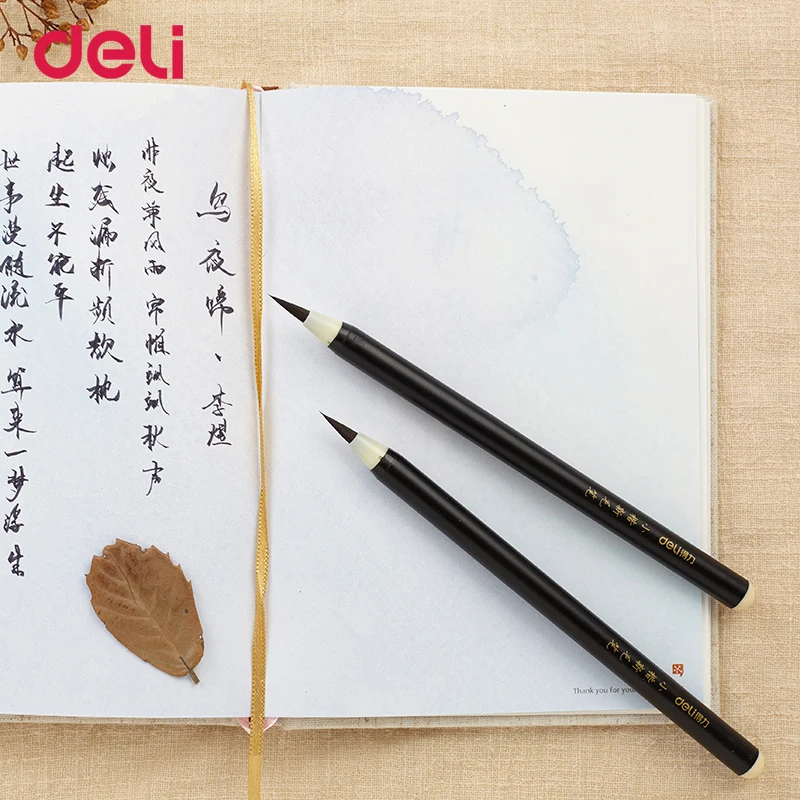 deli
乌夜啼、李煜
昨夜兼风雨 帘帷飒飒秋声
烛残漏断频欹枕
起坐不能平
世事漫随流水 算来一梦浮生
deli得力 小楷新毛笔
deli得力 小楷新毛笔
Thank you for